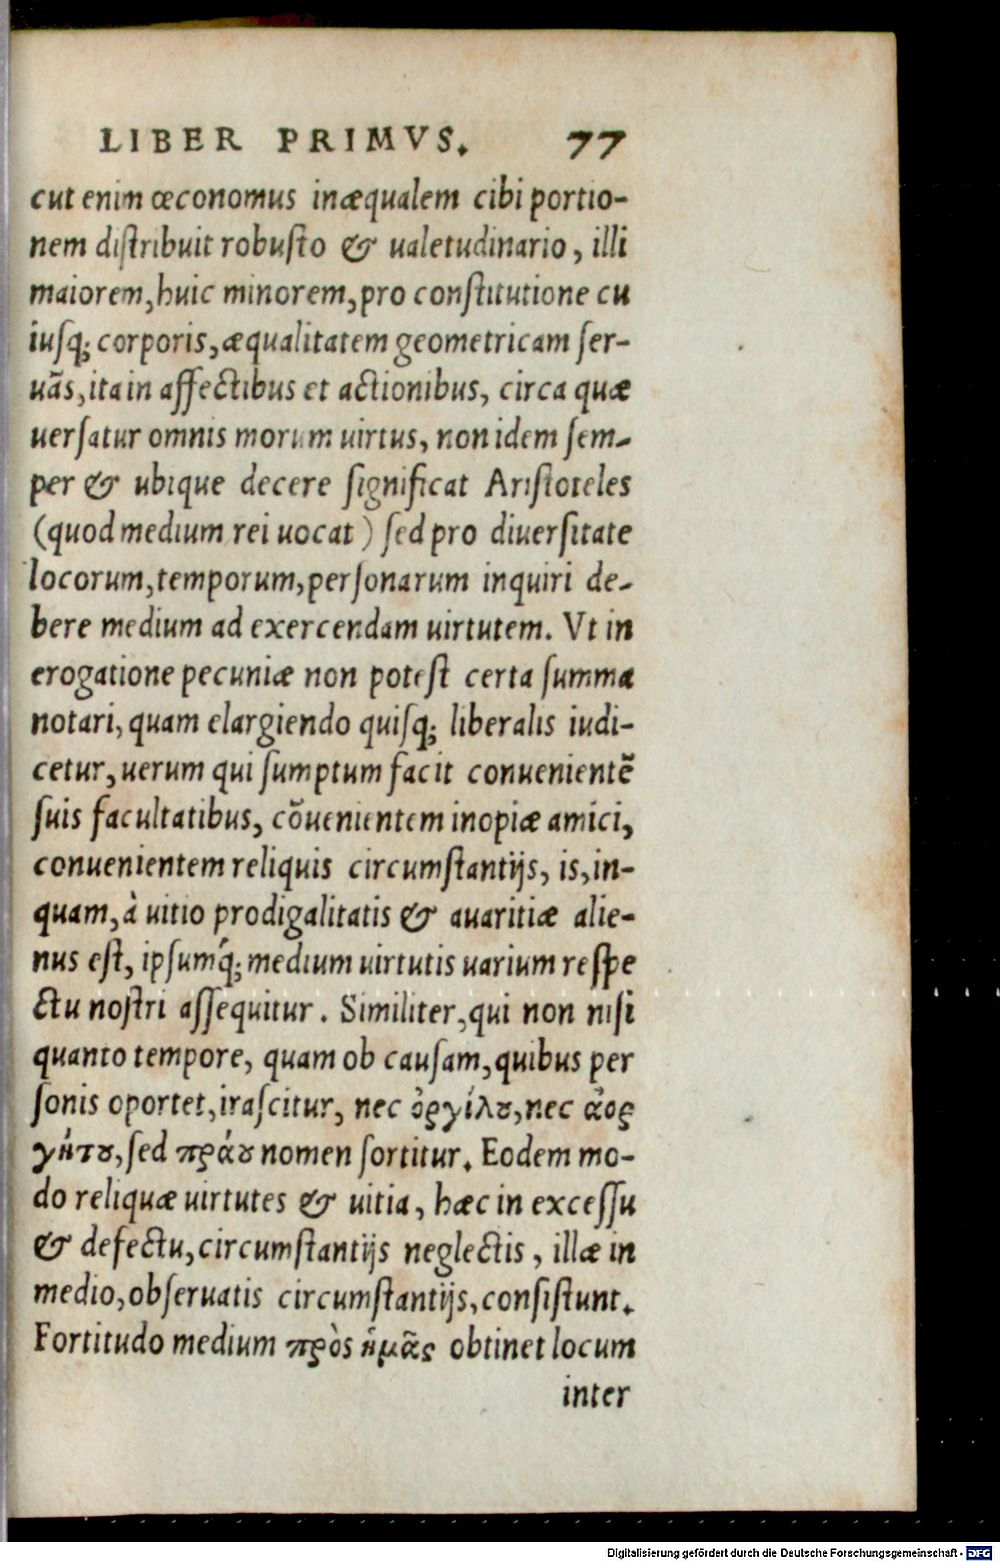 LIBER PRIMVS. 77
cut enim œconomus inæqualem cibi portio-
nem distribuit robusto & ualetudinario, illi
maiorem, huic minorem, pro constitutione cu
iusq; corporis, æqualitatem geometricam ser-
uãs, ita in affectibus et actionibus, circa quæ
uersatur omnis morum uirtus, non idem sem-
per & ubique decere significat Aristoteles
(quod medium rei uocat) sed pro diuersitate
locorum, temporum, personarum inquiri de-
bere medium ad exercendam uirtutem. Vt in
erogatione pecuniæ non potest certa summa
notari, quam elargiendo quisq; liberalis iudi-
cetur, uerum qui sumptum facit conuenientẽ
suis facultatibus, cõuenientem inopiæ amici,
conuenientem reliquis circumstantijs, is, in-
quam, à uitio prodigalitatis & auaritiæ alie-
nus est, ipsumq́; medium uirtutis uarium respe
ctu nostri assequitur. Similiter, qui non nisi
quanto tempore, quam ob causam, quibus per
sonis oportet, irascitur, nec ὀργίλȣ, nec ἀορ
γήτȣ, sed πράȣ nomen sortitur. Eodem mo-
do reliquæ uirtutes & uitia, hæc in excessu
& defectu, circumstantijs neglectis, illæ in
medio, obseruatis circumstantijs, consistunt.
Fortitudo medium πρὸς ἡμᾶς obtinet locum
inter
Digitalisierung gefördert durch die Deutsche Forschungsgemeinschaft - DFG